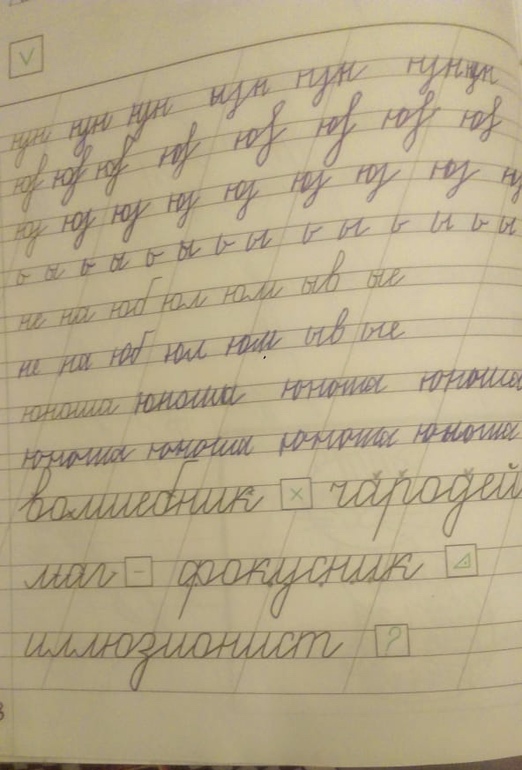 нун нун нун нун нун нуннун
юб юб юб юб юб юб юб юб
юз юз юз юз юз юз юз юз
ь ы ь ы ь ы ь ы ь ы ь ы ь ы
не на юб юл юм ыв ые
не на юб юл юм ыв ые
юноша юноша юноша юноша
юноша юноша юноша юноша
волшебник × чародей
маг - фокусник
иллюзионист ?